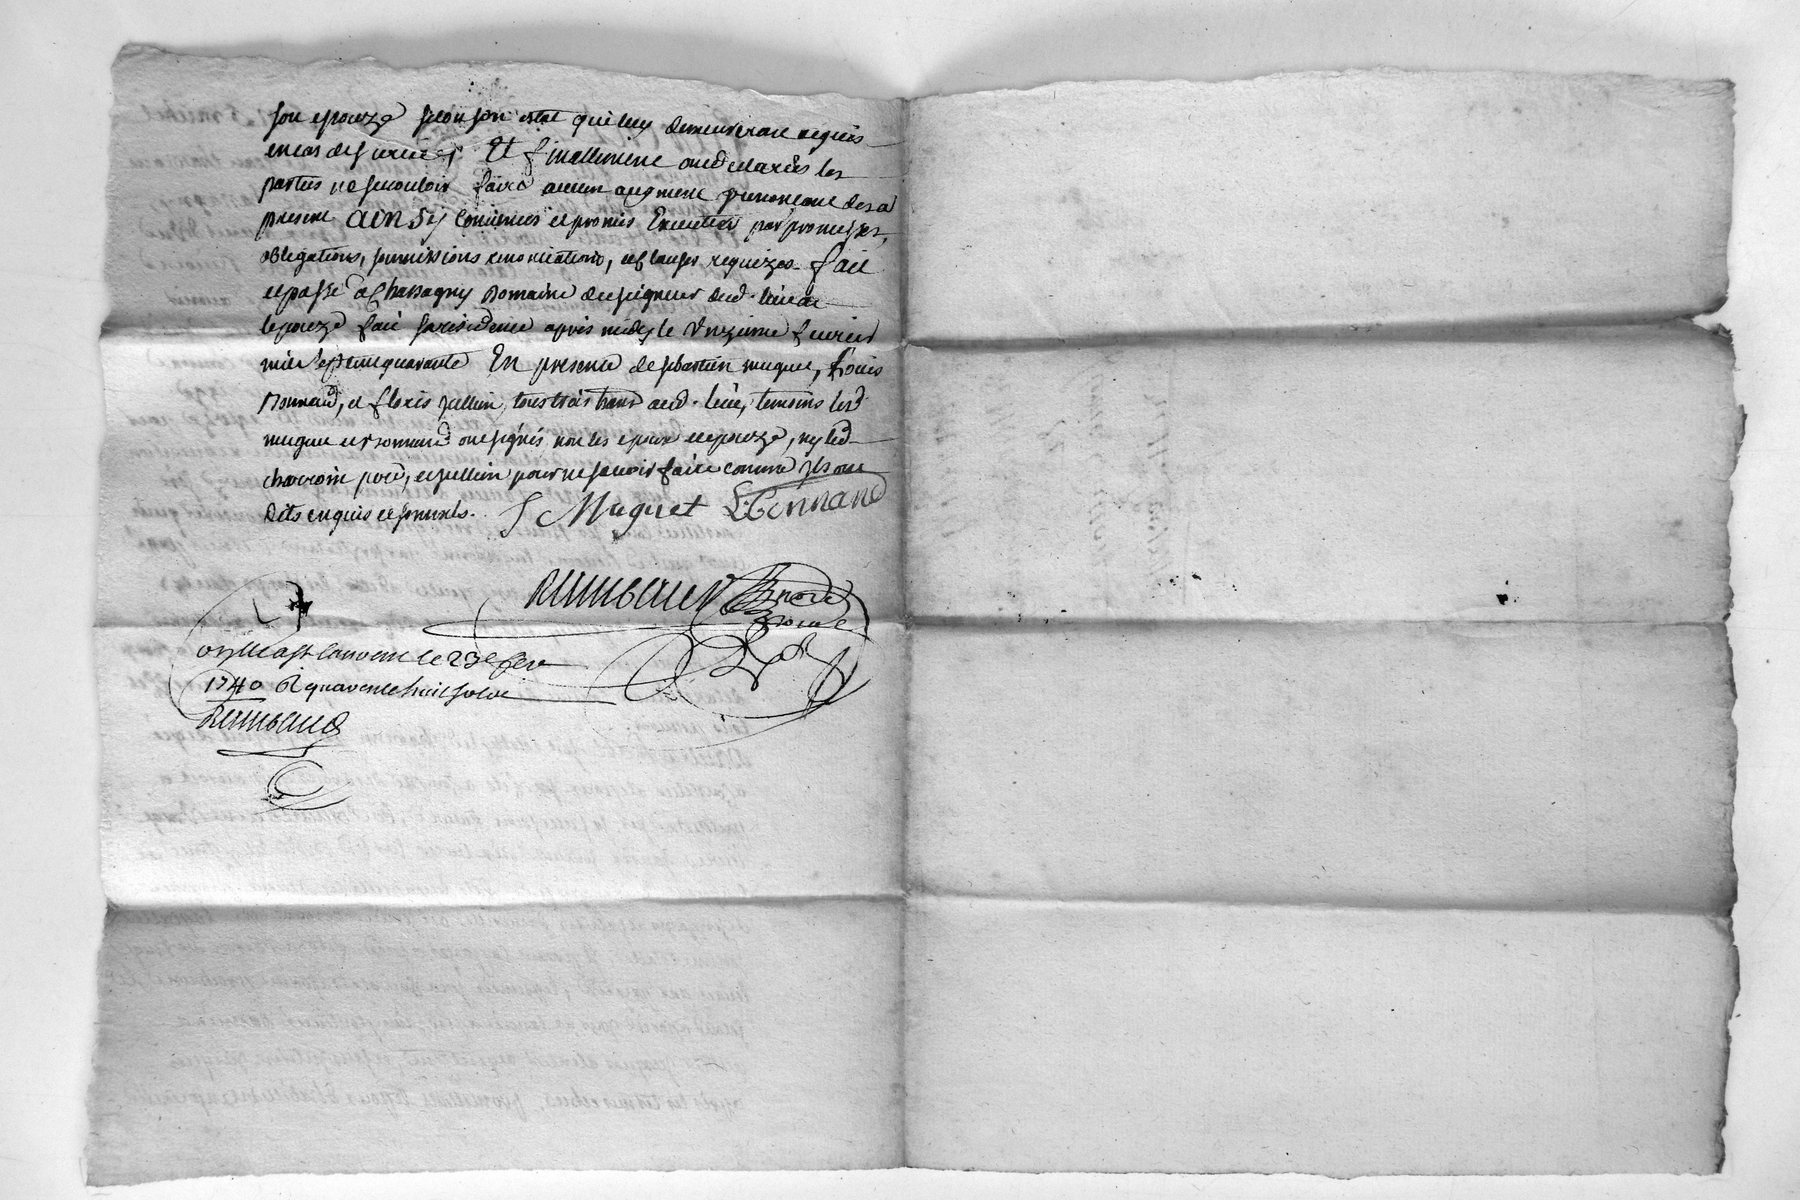 son epouze selon son estat qui luy demeureront acquis
en cas de survie, Et finallement ont declarés les
parties ne scavoir faire aucun augment
present ainsy convenus et promis Executer par promesses,
obligations, soumissions renonciations, et clauses requizes. fait
et passé a Chassagny Domaine du seigneur dud. lieu ou
lepouze fait sa residence apres midy le Onzieme fevrier
mil sept cent quarante En presence de sebastien muguet, Louis
Bonnand, et floris Jullien, tous trois hans aud. lieu, temoins lesd
muguet et bonnand ont signés non les epoux et epouze, ny led
charvoin pere, et Jullien pour ne scavoir faire comme ils ont
Dits enquis et sommés. S Muguet L Bonnand
Raimbaud
Controllé a St Laurent le 23e fevr
1740 R quarente huit sols
Raimbaud